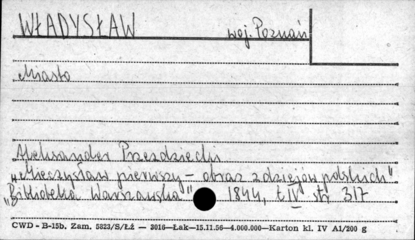 WŁADYSŁAW woj. Poznań
Miasto
Aleksander Przezdziecki
„Mieczysław pierwszy – obraz z dziejów polskich"
„Biblioteka Warszawska" 1844, t. IV str. 317
CWD - B-15b. Zam. 5823/S/Łź — 2016—Łak—15.11.56—4.000.000—Karton kl. IV A1/200 g